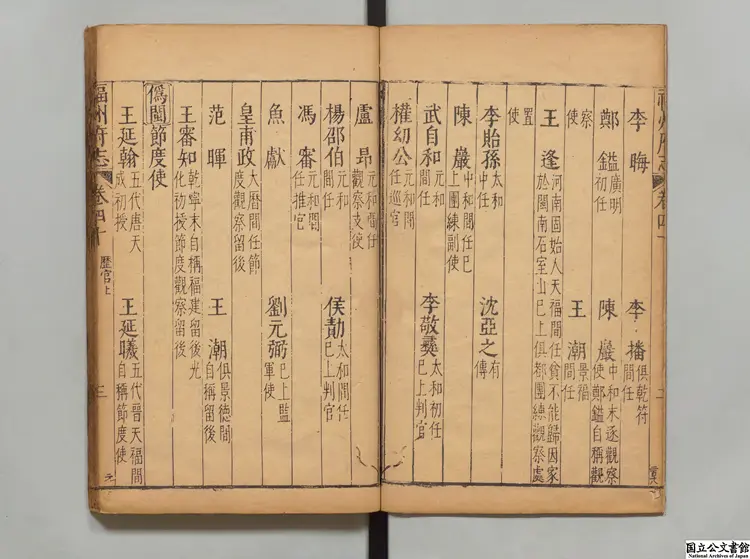 李晦 李播俱乾符間任
鄭鎰廣明初任 陳巖中和末逐觀察使鄭鎰自稱觀
察使
王逢河南固始人天福間任貧不能歸因家於閩南石室山已上俱都團練觀察處 王潮景福間任
置使
李貽孫太和中任 沈亞之有傳
陳巖中和間任已上團練副使
武自和元和間任 李敬彞太和初任已上判官
權幼公元和間任巡官
盧昂元和間任觀察支使
楊邵伯元和間任 侯勣太和間任已上判官
馮審元和間任推官
魚獻 劉元弼已上監軍使
皇甫政大曆間任節度觀察留後
范暉 王潮俱景德間自稱留後
王審知乾寧末自稱福建留後光化初授節度觀察留後
僞閩節度使
王延翰五代唐天成初授 王延曦五代晉天福間自稱節度使
福州府志 卷四十 歷官上 三
国立公文書館
National Archives of Japan